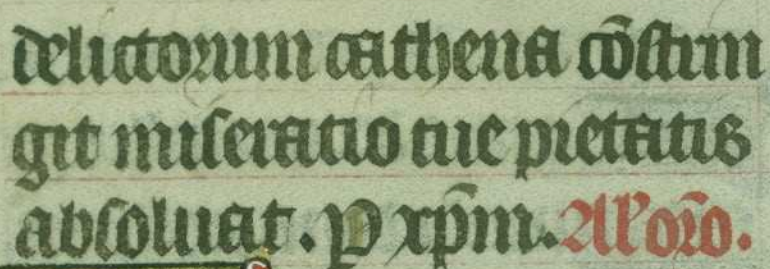 delictorum cathena cōstrin
git miseratio tue pietatis
absoluat. P xp̄m. Al' or̄o.